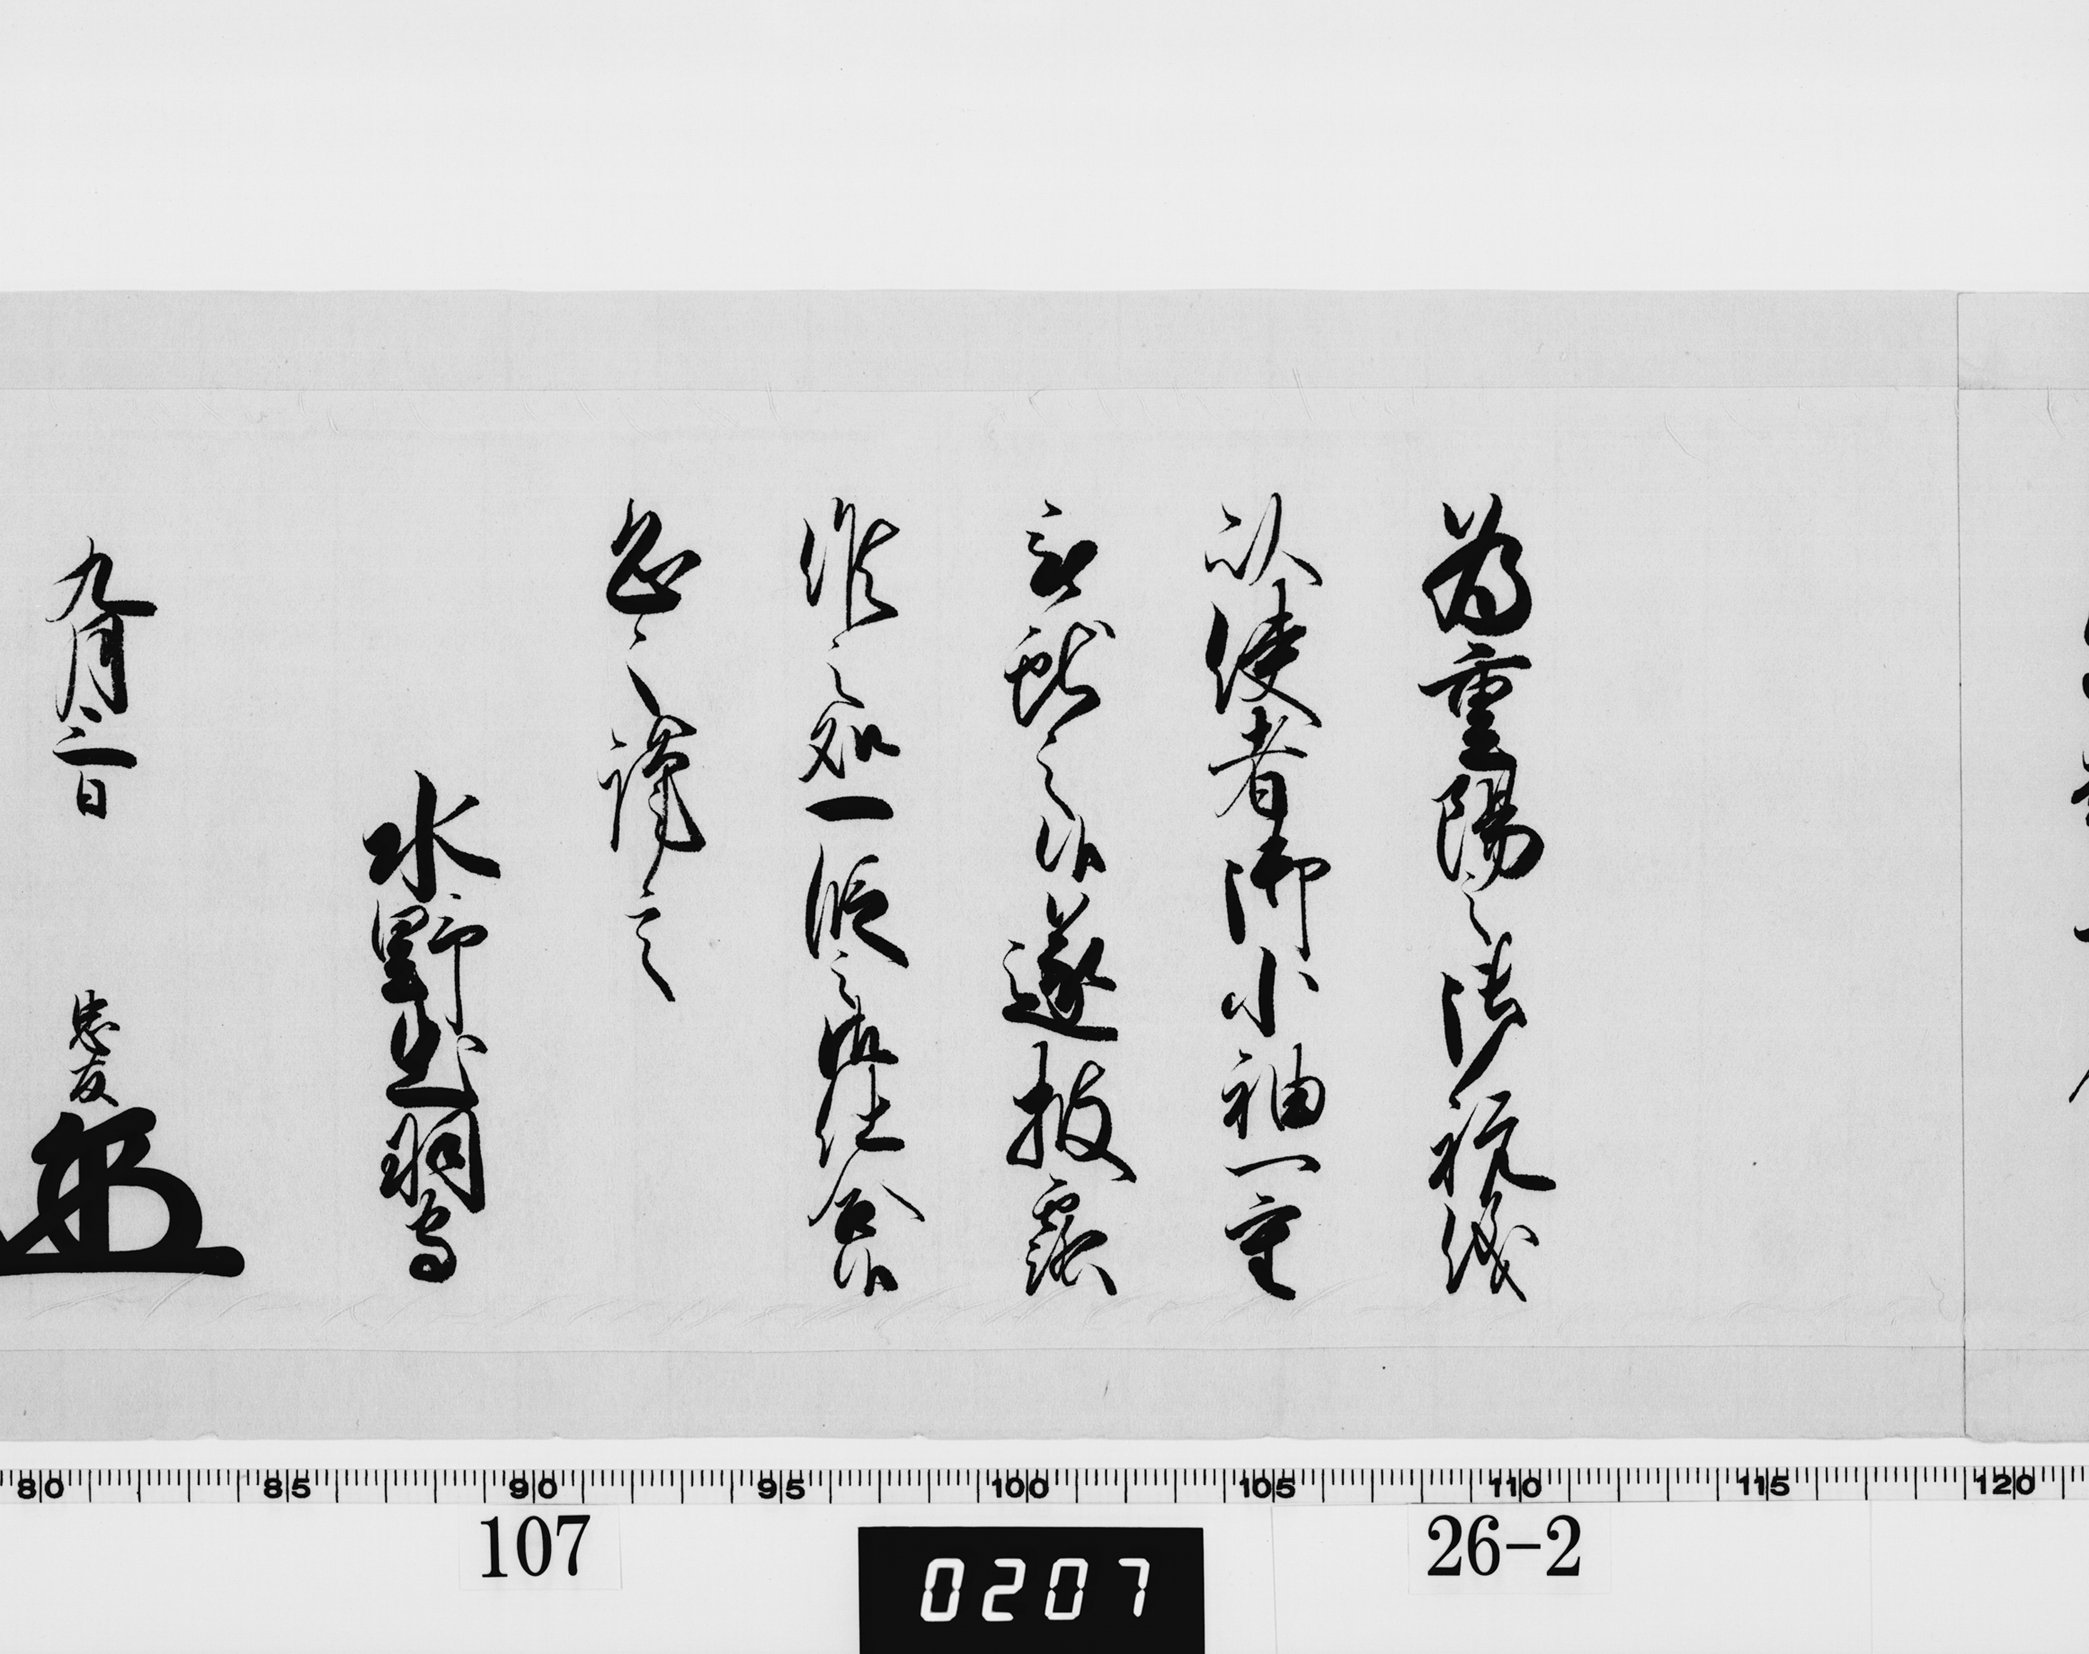 為重陽之御祝儀
以使者御小袖一重
被献之候遂披露
候之処一段之御仕合候
恐々謹言
水野出羽守
九月三日 忠友
80 85 90 95 100 105 110 115 120
107
0207
26-2